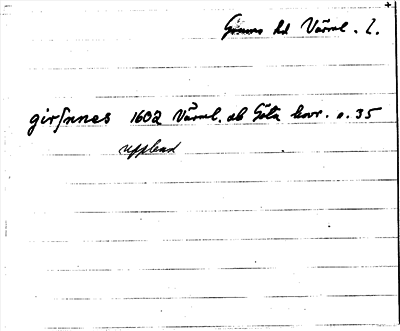 Grums hd Värml. l.
girſnnes 1602 Värml. ab Göta hovr. s. 35
uppland